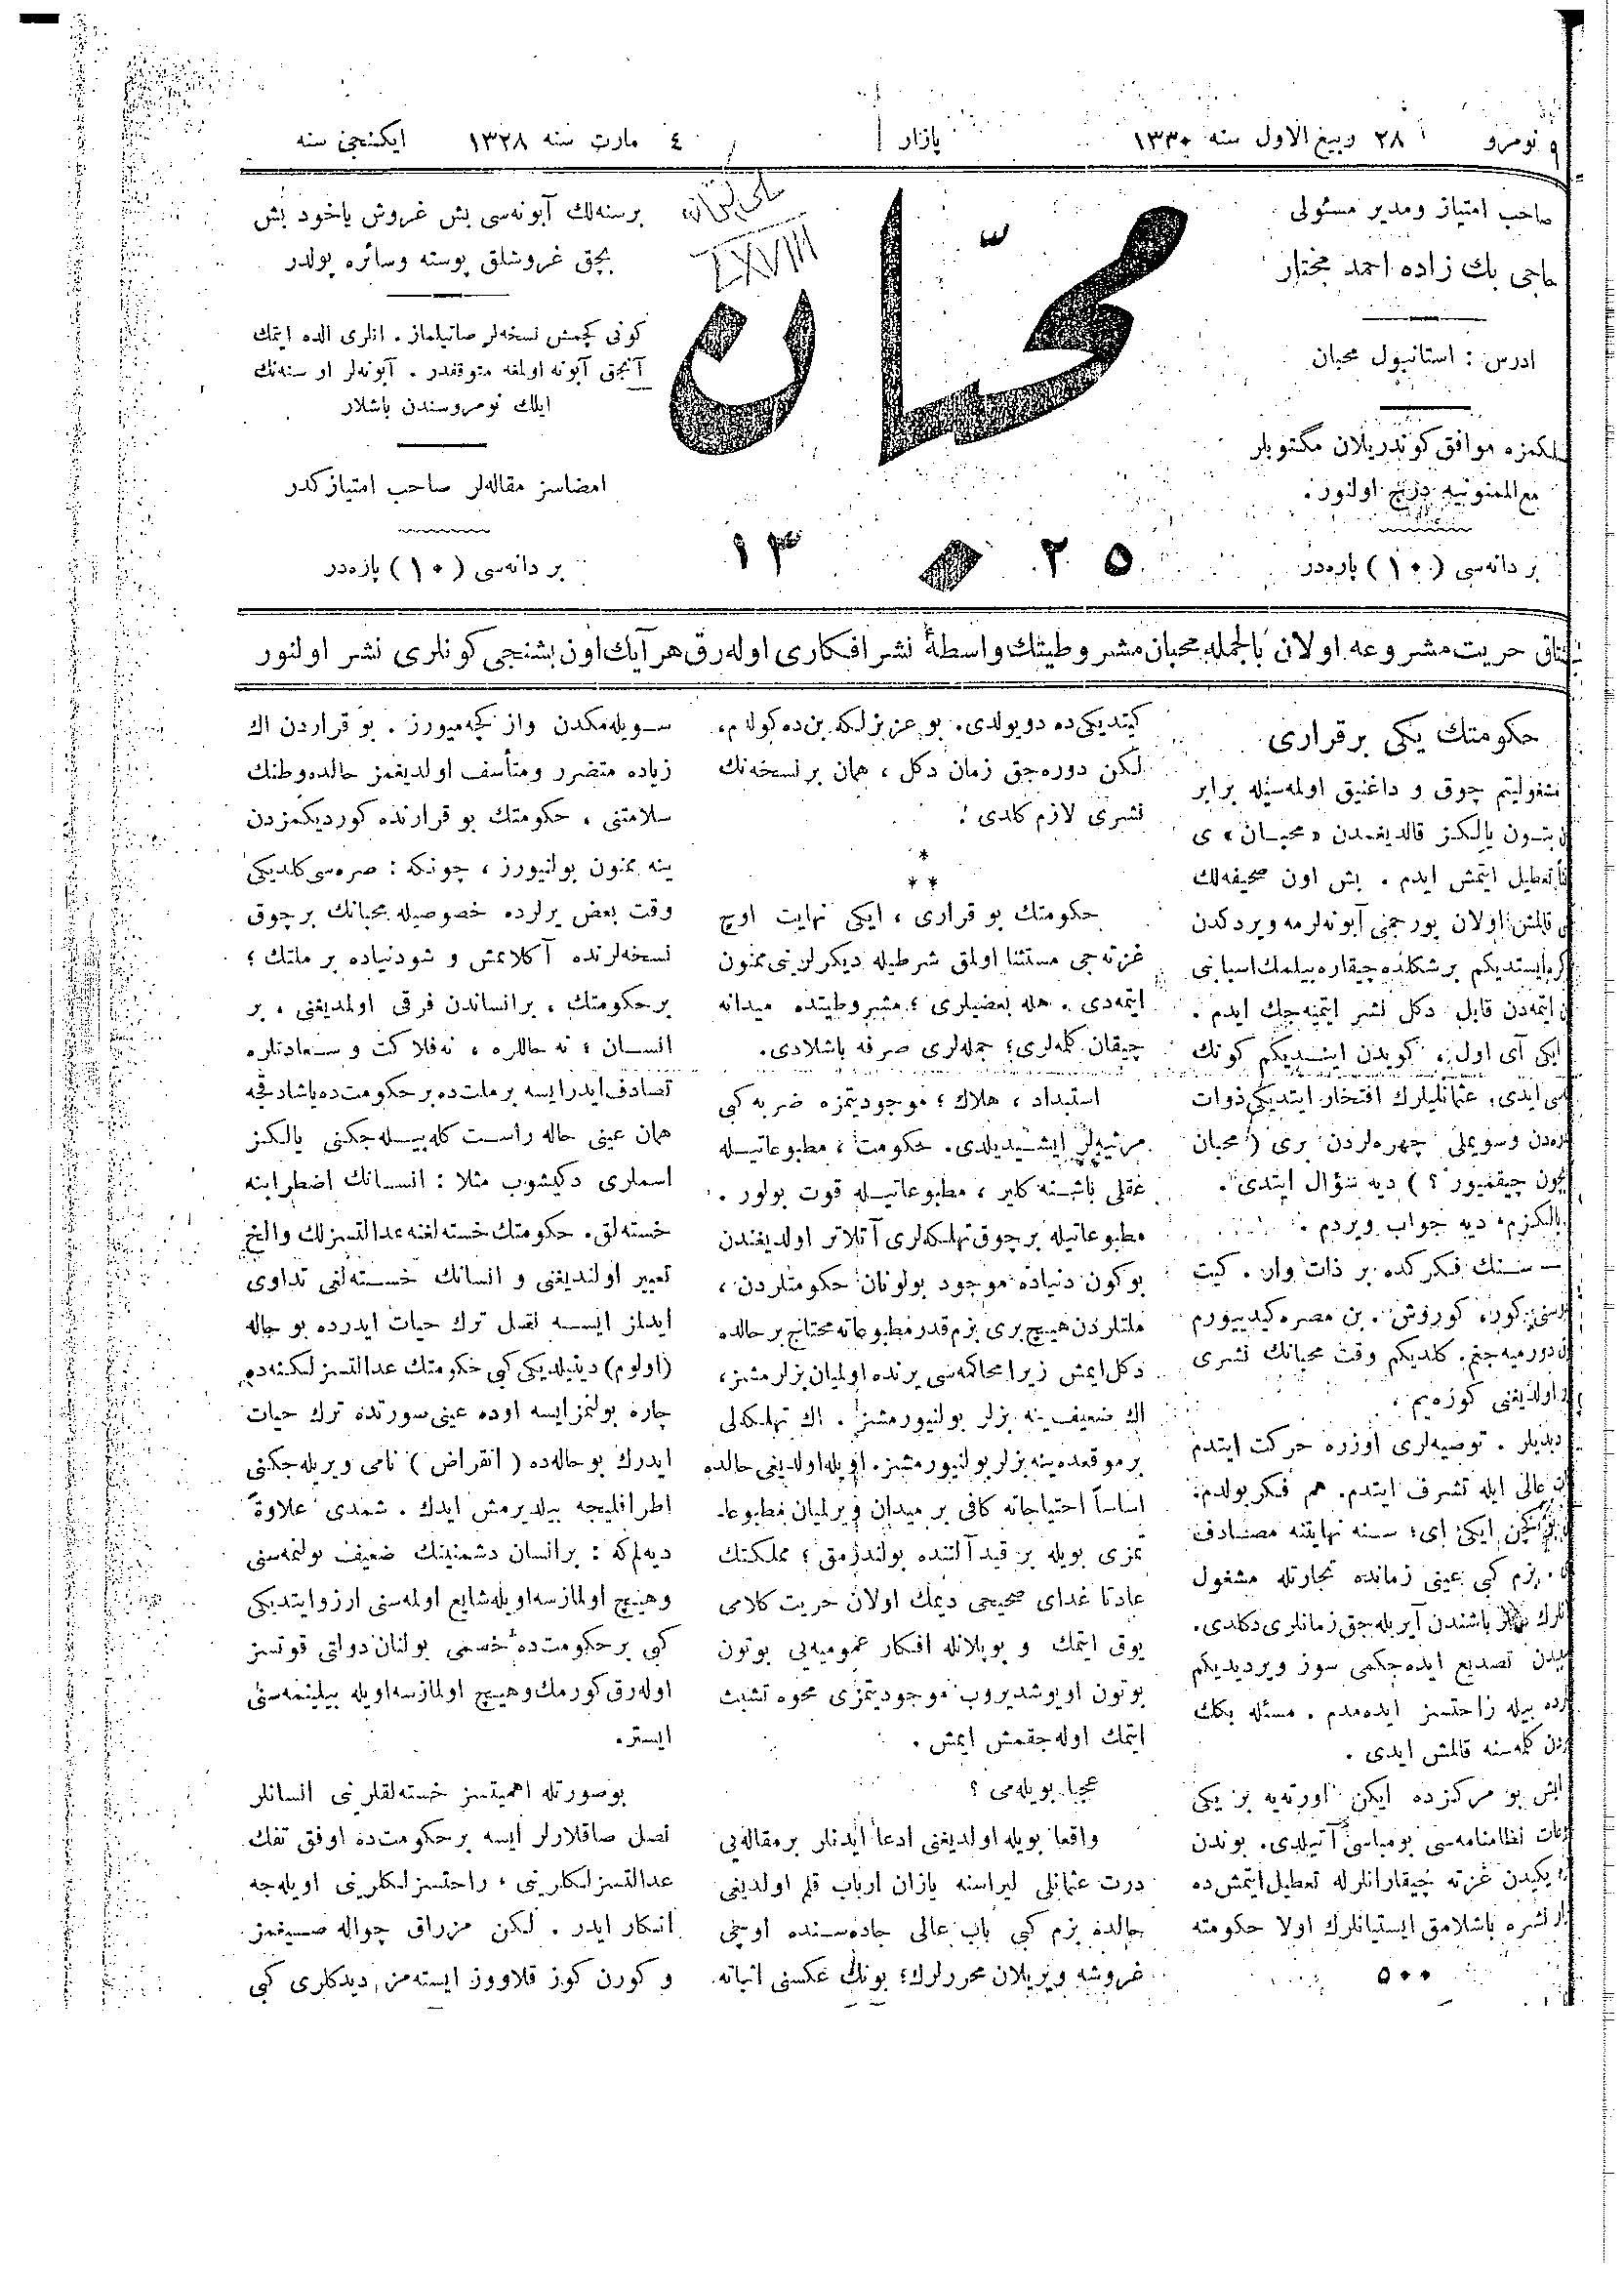 نومرو ٩ ٢٨ ربيع الاول سنه ١٣٣٠ پازار ٤ مارت سنه ١٣٢٨ ايكنجى سنه
صاحب امتياز ومدير مسئولى
حاجى بك زاده احمد مختار
ادرس : استانبول محبان
مسلكمزه موافق كوندريلان مكتوبلر
مع الممنونيه درج اولنور.
بر دانه‌سى (١٠) پاره‌در
محبان
٢٥ ١٣
LXVIII
برسنه‌لك آبونه‌سى بش غروش ياخود بش
بچق غروشلق پوسته وسائره پولدر
كونى كچمش نسخه‌لر صاتيلماز. انلرى الده ايتمك
آنجق آبونه اولمغه متوقفدر. آبونه‌لر او سنه‌نك
ايلك نومروسندن باشلار
امضاسز مقاله‌لر صاحب امتيازكدر
بر دانه‌سى (١٠) پاره‌در
حريت مشروعه اولان بالجمله محبان مشروطيتك واسطهٔ نشر افكارى اوله‌رق هر آيك اون بشنجى كونلرى نشر اولنور
حكومتك يكى برقرارى
مشغوليتم چوق و داغنيق اولمه‌سيله برابر
بتون يالكز قالديغمدن «محبان» ى
تعطيل ايتمش ايدم. بش اون صحيفه‌لك
قالمش اولان بورجمى آبونه‌لرمه ويردكدن
ايستديكم برشكلده چيقاره بيلمك اسبابنى
ايتمه‌دن قابل دكل نشر ايتميه‌جك ايدم.
ايكى آى اول، كويدن ايتديكم كونك
ايدى، عثمانليلرك افتخار ايتديكى ذوات
وسويملى چهره‌لردن برى (محبان
ايچون چيقميور؟) ديه سؤال ايتدى.
يالكزم، ديه جواب ويردم.
— سنك فكركده بر ذات وار. كيت
كوره كوروش. بن مصره كيدييورم
دورميه‌جغم. كلديكم وقت محبانك نشرى
اولديغنى كوزه‌يم.
ديديلر. توصيه‌لرى اوزره حركت ايتدم
عالى ايله تشرف ايتدم. هم فكر بولدم.
ايكى آى؛ سنه نهايتنه مصادف
بزم كبى عينى زمانده تجارتله مشغول
باشندن آيريله‌جق زمانلرى دكلدى.
تصديع ايده‌جكمى سوز ويرديديكم
بيله زاحتسز ايده‌مدم. مسئله بكك
كلمه‌سنه قالمش ايدى.
ايش بو مركزده ايكن اورته‌يه بر يكى
نظامنامه‌سى بومباسى آتيلدى. بوندن
يكيدن غزته چيقارانلرله تعطيل ايتمش‌ده
نشره باشلامق ايستيانلرك اولا حكومته
٥٠٠
كيتديكى‌ده دويولدى. بو عزيزلكه بن‌ده كولدم،
لكن دوره‌جق زمان دكل، همان بر نسخه‌نك
نشرى لازم كلدى!
*
* *
حكومتك بو قرارى، ايكى نهايت اوچ
غزته‌جى مستثنا اولمق شرطيله ديكرلرينى ممنون
ايتمه‌دى. هله بعضيلرى؛ مشروطيتده ميدانه
چيقان كلمه‌لرى؛ جمله‌لرى صرفه باشلادى.
استبداد، هلاك؛ موجوديتمزه ضربه كبى
مرثيه‌لر ايشيديلدى. حكومت، مطبوعاتيله
عقلى باشنه كلير، مطبوعاتيله قوت بولور.
مطبوعاتيله برچوق تهلكه‌لرى آتلاتر اولديغندن
بوكون دنياده موجود بولونان حكومتلردن،
ملتلردن هيچ برى بزم قدر مطبوعاته محتاج برحالده
دكل ايمش زيرا محاكمه‌سى يرنده اولميان بزلر مشز،
اك ضعيف ينه بزلر بولنيورمشز. اك تهلكه‌لى
برموقعده ينه بزلر بولنيورمشز. اويله اولديغى حالده
اساساً احتياجاته كافى بر ميدان ويرلميان مطبوعا-
تمزى بويله بر قيد آلتنده بولندرمق؛ مملكتك
عادتا غداى صحيحى ديمك اولان حريت كلامى
يوق ايتمك و بويلانله افكار عموميه‌يى بوتون
بوتون اويوشديروب موجوديتمزى محوه تشبث
ايتمك اوله‌جقمش ايمش.
عجبا بويله‌مى؟
واقعا بويله اولديغنى ادعا ايدنلر برمقاله‌يى
درت عثمانلى ليراسنه يازان ارباب قلم اولديغى
حالده بزم كبى باب عالى جاده‌سنده اوچى
غروشه ويريلان محررلرك؛ بونك عكسنى اثباته
سويله‌مكدن واز كچه‌ميورز. بو قراردن اك
زياده متضرر ومتأسف اولديغمز حالده وطنك
سلامتنى، حكومتك بو قرارنده كورديكمزدن
ينه ممنون بولنيورز، چونكه: صره‌سى كلديكى
وقت بعض يرلرده خصوصيله محبانك برچوق
نسخه‌لرنده آكلاتمش و شو دنياده بر ملتك؛
برحكومتك، برانساندن فرقى اولمديغنى، بر
انسان؛ نه حاللره، نه فلاكت و سعادتلره
تصادف ايدرايسه برملت‌ده برحكومت‌ده ياشادقجه
همان عينى حاله راست كله‌بيله‌جكنى يالكز
اسملرى دكيشوب مثلا: انسانك اضطرابنه
خسته‌لق، حكومتك خسته‌لغنه عدالتسزلك والخ
تعبير اولنديغنى و انسانك خسته‌لغى تداوى
ايدلز ايسه نصل ترك حيات ايدرده بو حاله
(اولوم) دينيلديكى كبى حكومتك عدالتسزلكنه‌ده
چاره بولنمز ايسه اوده عينى سورتده ترك حيات
ايدرك بو حاله‌ده (انقراض) نامى ويريله‌جكنى
اطرافليجه بيلديرمش ايدك. شمدى علاوةً
ديه‌لم‌كه: برانسان دشمنينك ضعيف بولنمه‌سنى
وهيچ اولمازسه اويله شايع اولمه‌سنى ارزو ايتديكى
كبى برحكومت‌ده خسمى بولنان دولتى قوتسز
اوله‌رق كورمك وهيچ اولمازسه اويله بيلينمه‌سنى
ايستر.
بوصورتله اهميتسز خسته‌لقلرينى انسانلر
نصل صاقلارلر ايسه برحكومت‌ده اوفق تفك
عدالتسزلكلرينى، راحتسزلكلرينى اويله‌جه
انكار ايدر. لكن مزراق چواله صيغمز
و كورن كوز قلاووز ايسته‌مز، ديدكلرى كبى